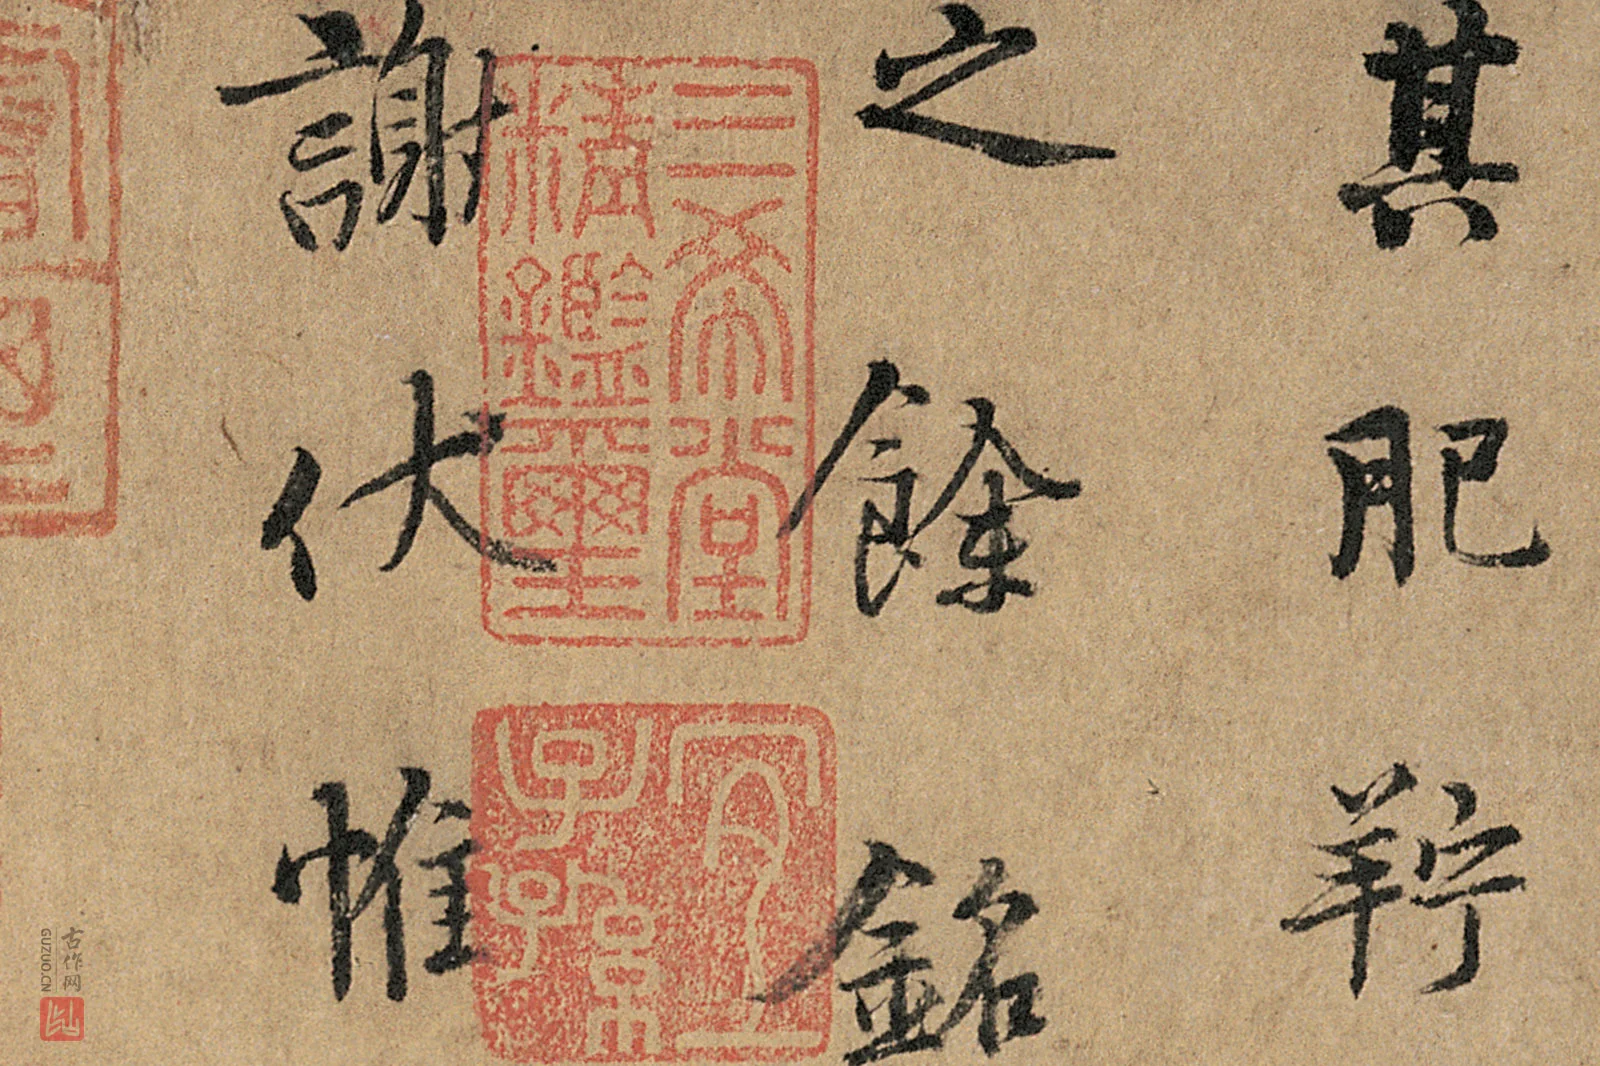 其肥羜
之餘銘
謝伏惟
三希堂
精鑑璽
宜
子孫
古作网
GUZUO.CN